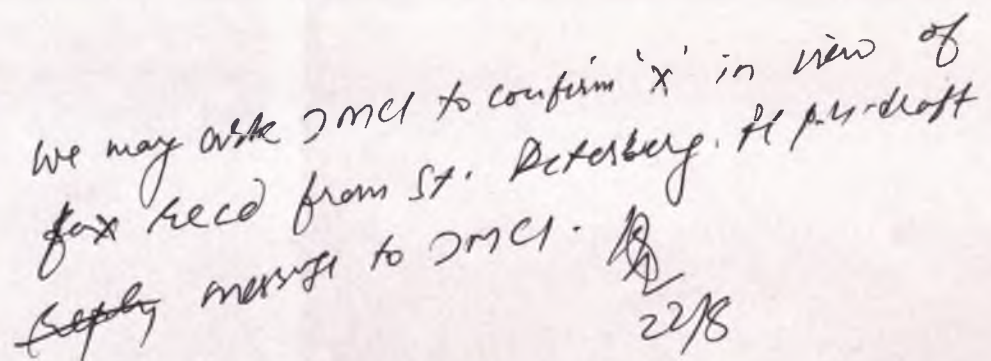 we may ask JMCI to confirm 'x' in view of
fax recd from St. Petersberg. Pl p.u. draft
message to JMCI.
22/8